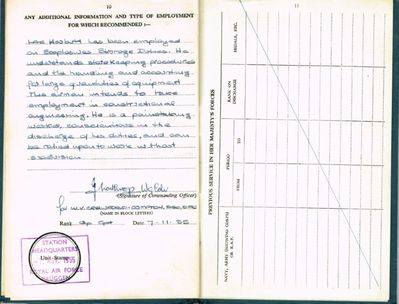 10
ANY ADDITIONAL INFORMATION AND TYPE OF EMPLOYMENT
FOR WHICH RECOMMENDED :—
has been employed
on Explosives Storage Duties. He
understands storekeeping procedures
and the handling and accounting
for large quantities of equipment
This airman intends to take
employment in constructional
engineering. He is a painstaking
worker, conscientious in the
discharge of his duties, and can
be relied upon to work without
supervision
(Signature of Commanding Officer)
for
(NAME IN BLOCK LETTERS)
Rank Date 7-11-55
Unit Stamp
STATION
HEADQUARTERS
1955
ROYAL AIR FORCE
11
PREVIOUS SERVICE IN HER MAJESTY'S FORCES
NAVY, ARMY (SHOWING CORPS)
or R.A.F.
PERIOD
FROM
TO
RANK ON
DISCHARGE
MEDALS, ETC.